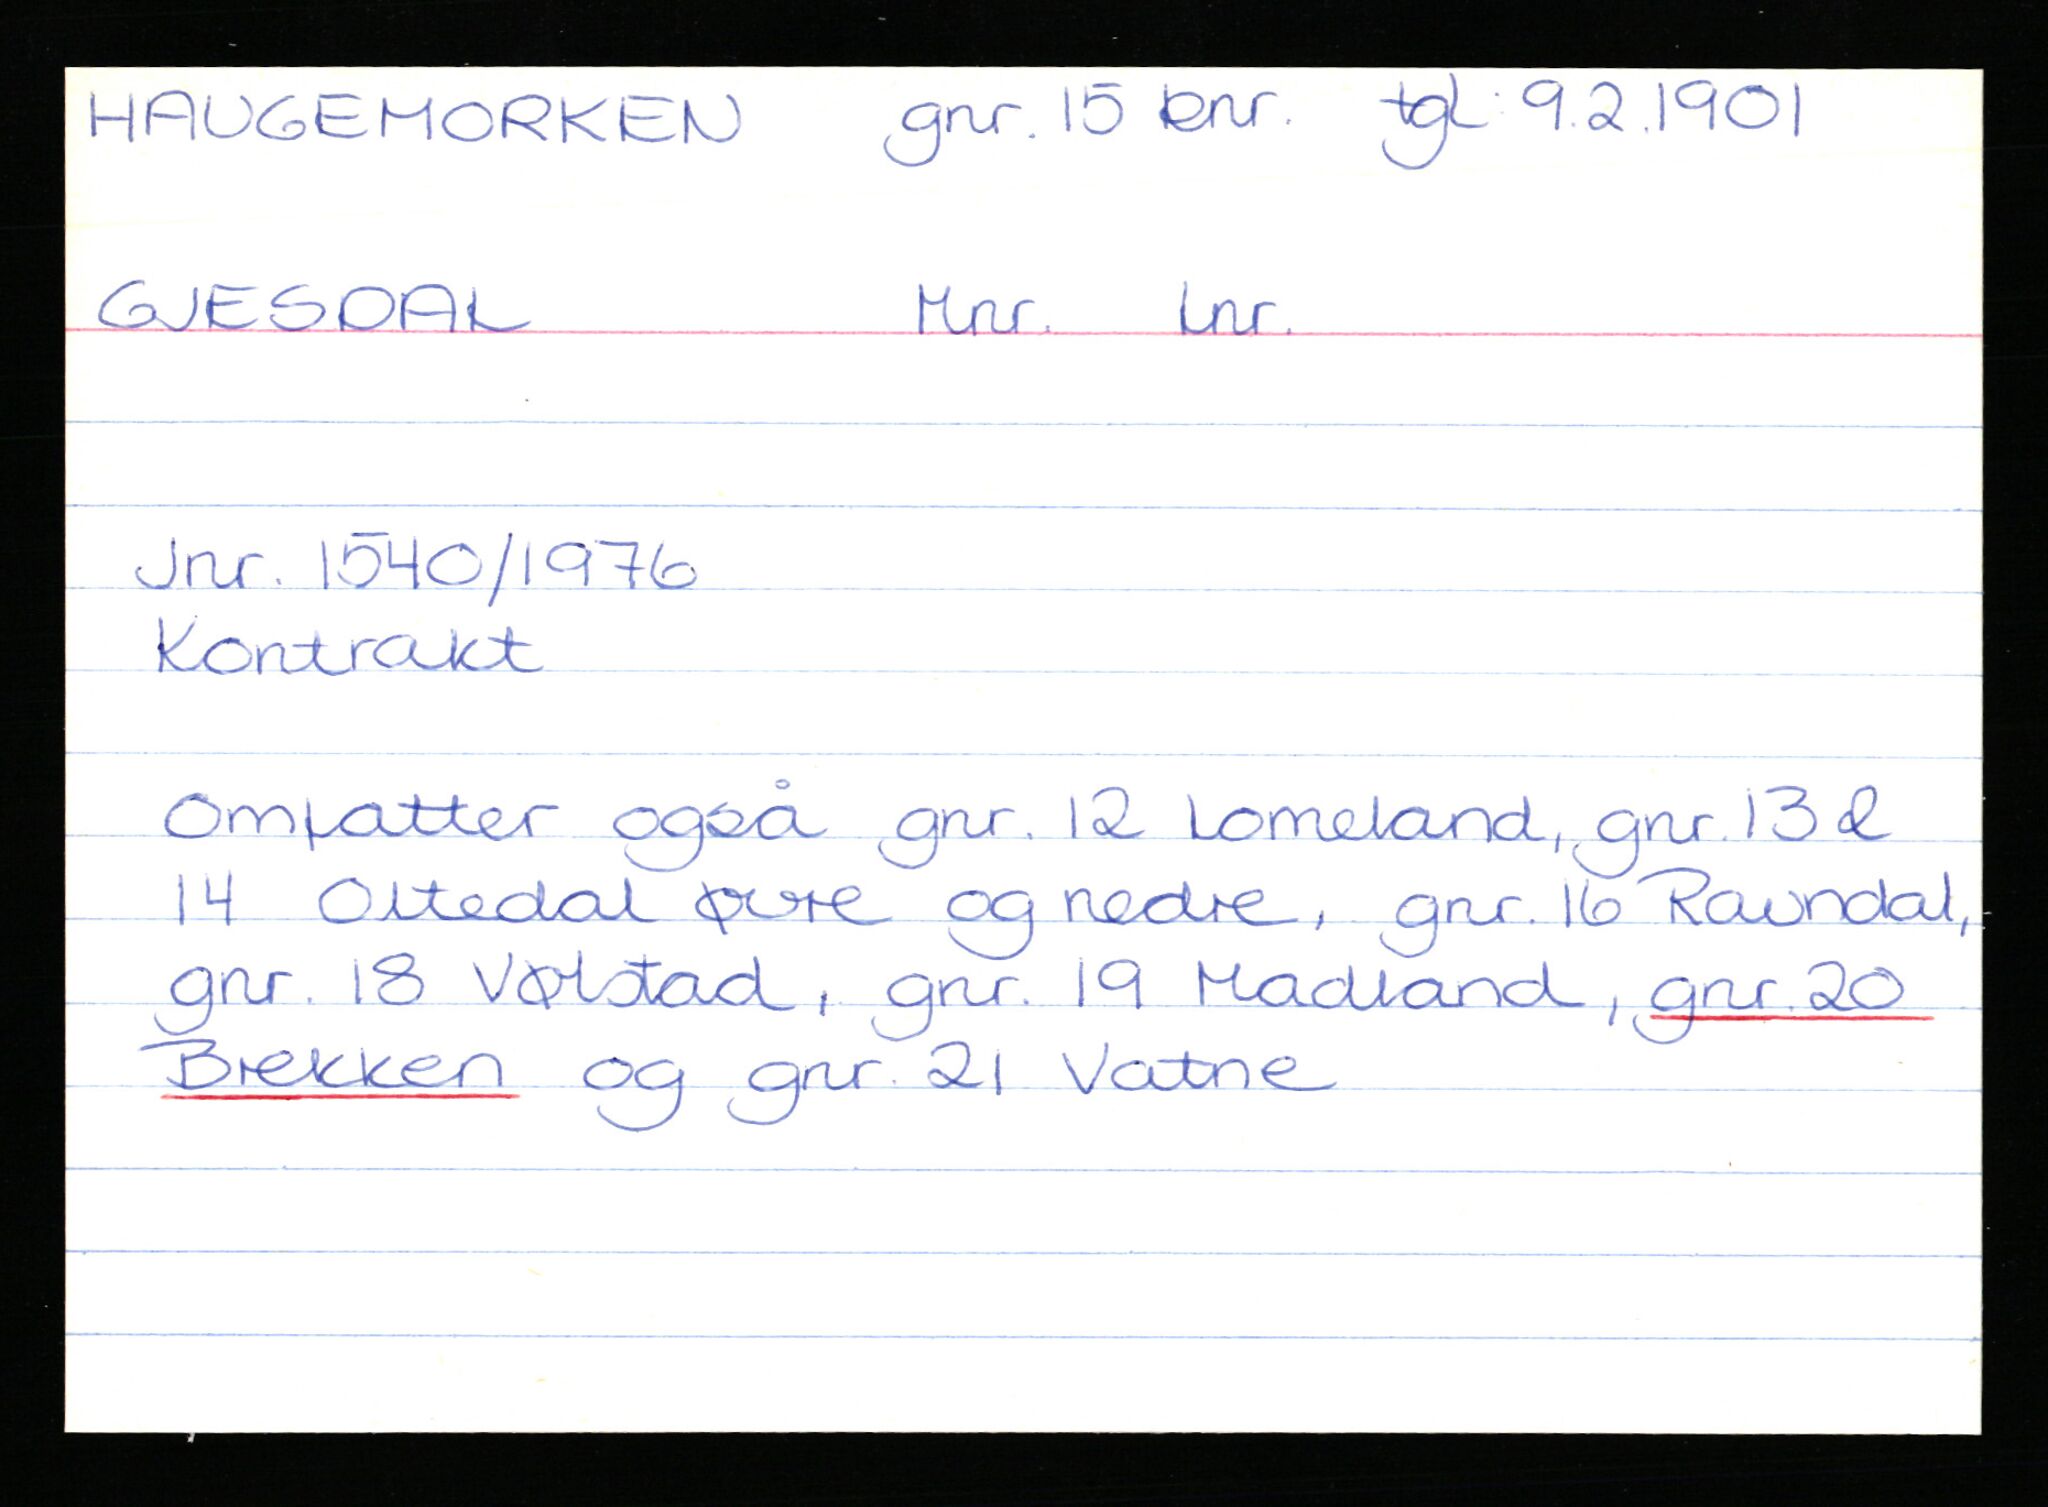 HAUGEMORKEN gnr. 15 bnr. tgl: 9.2.1901
GJESDAL Mnr. Lnr.
Jnr. 1540/1976
Kontrakt
Omfatter også gnr. 12 Lomeland, gnr. 13 &
14 Oltedal øvre og nedre, gnr. 16 Ravndal,
gnr. 18 Vølstad, gnr. 19 Madland, gnr. 20
Brekken og gnr. 21 Vatne